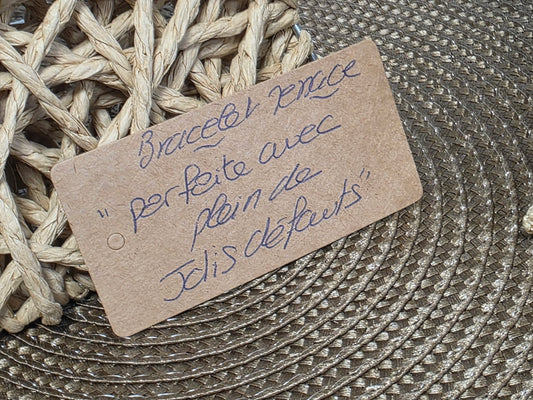 Bracelet
"perfaite avec
plein de
Jolis défauts"